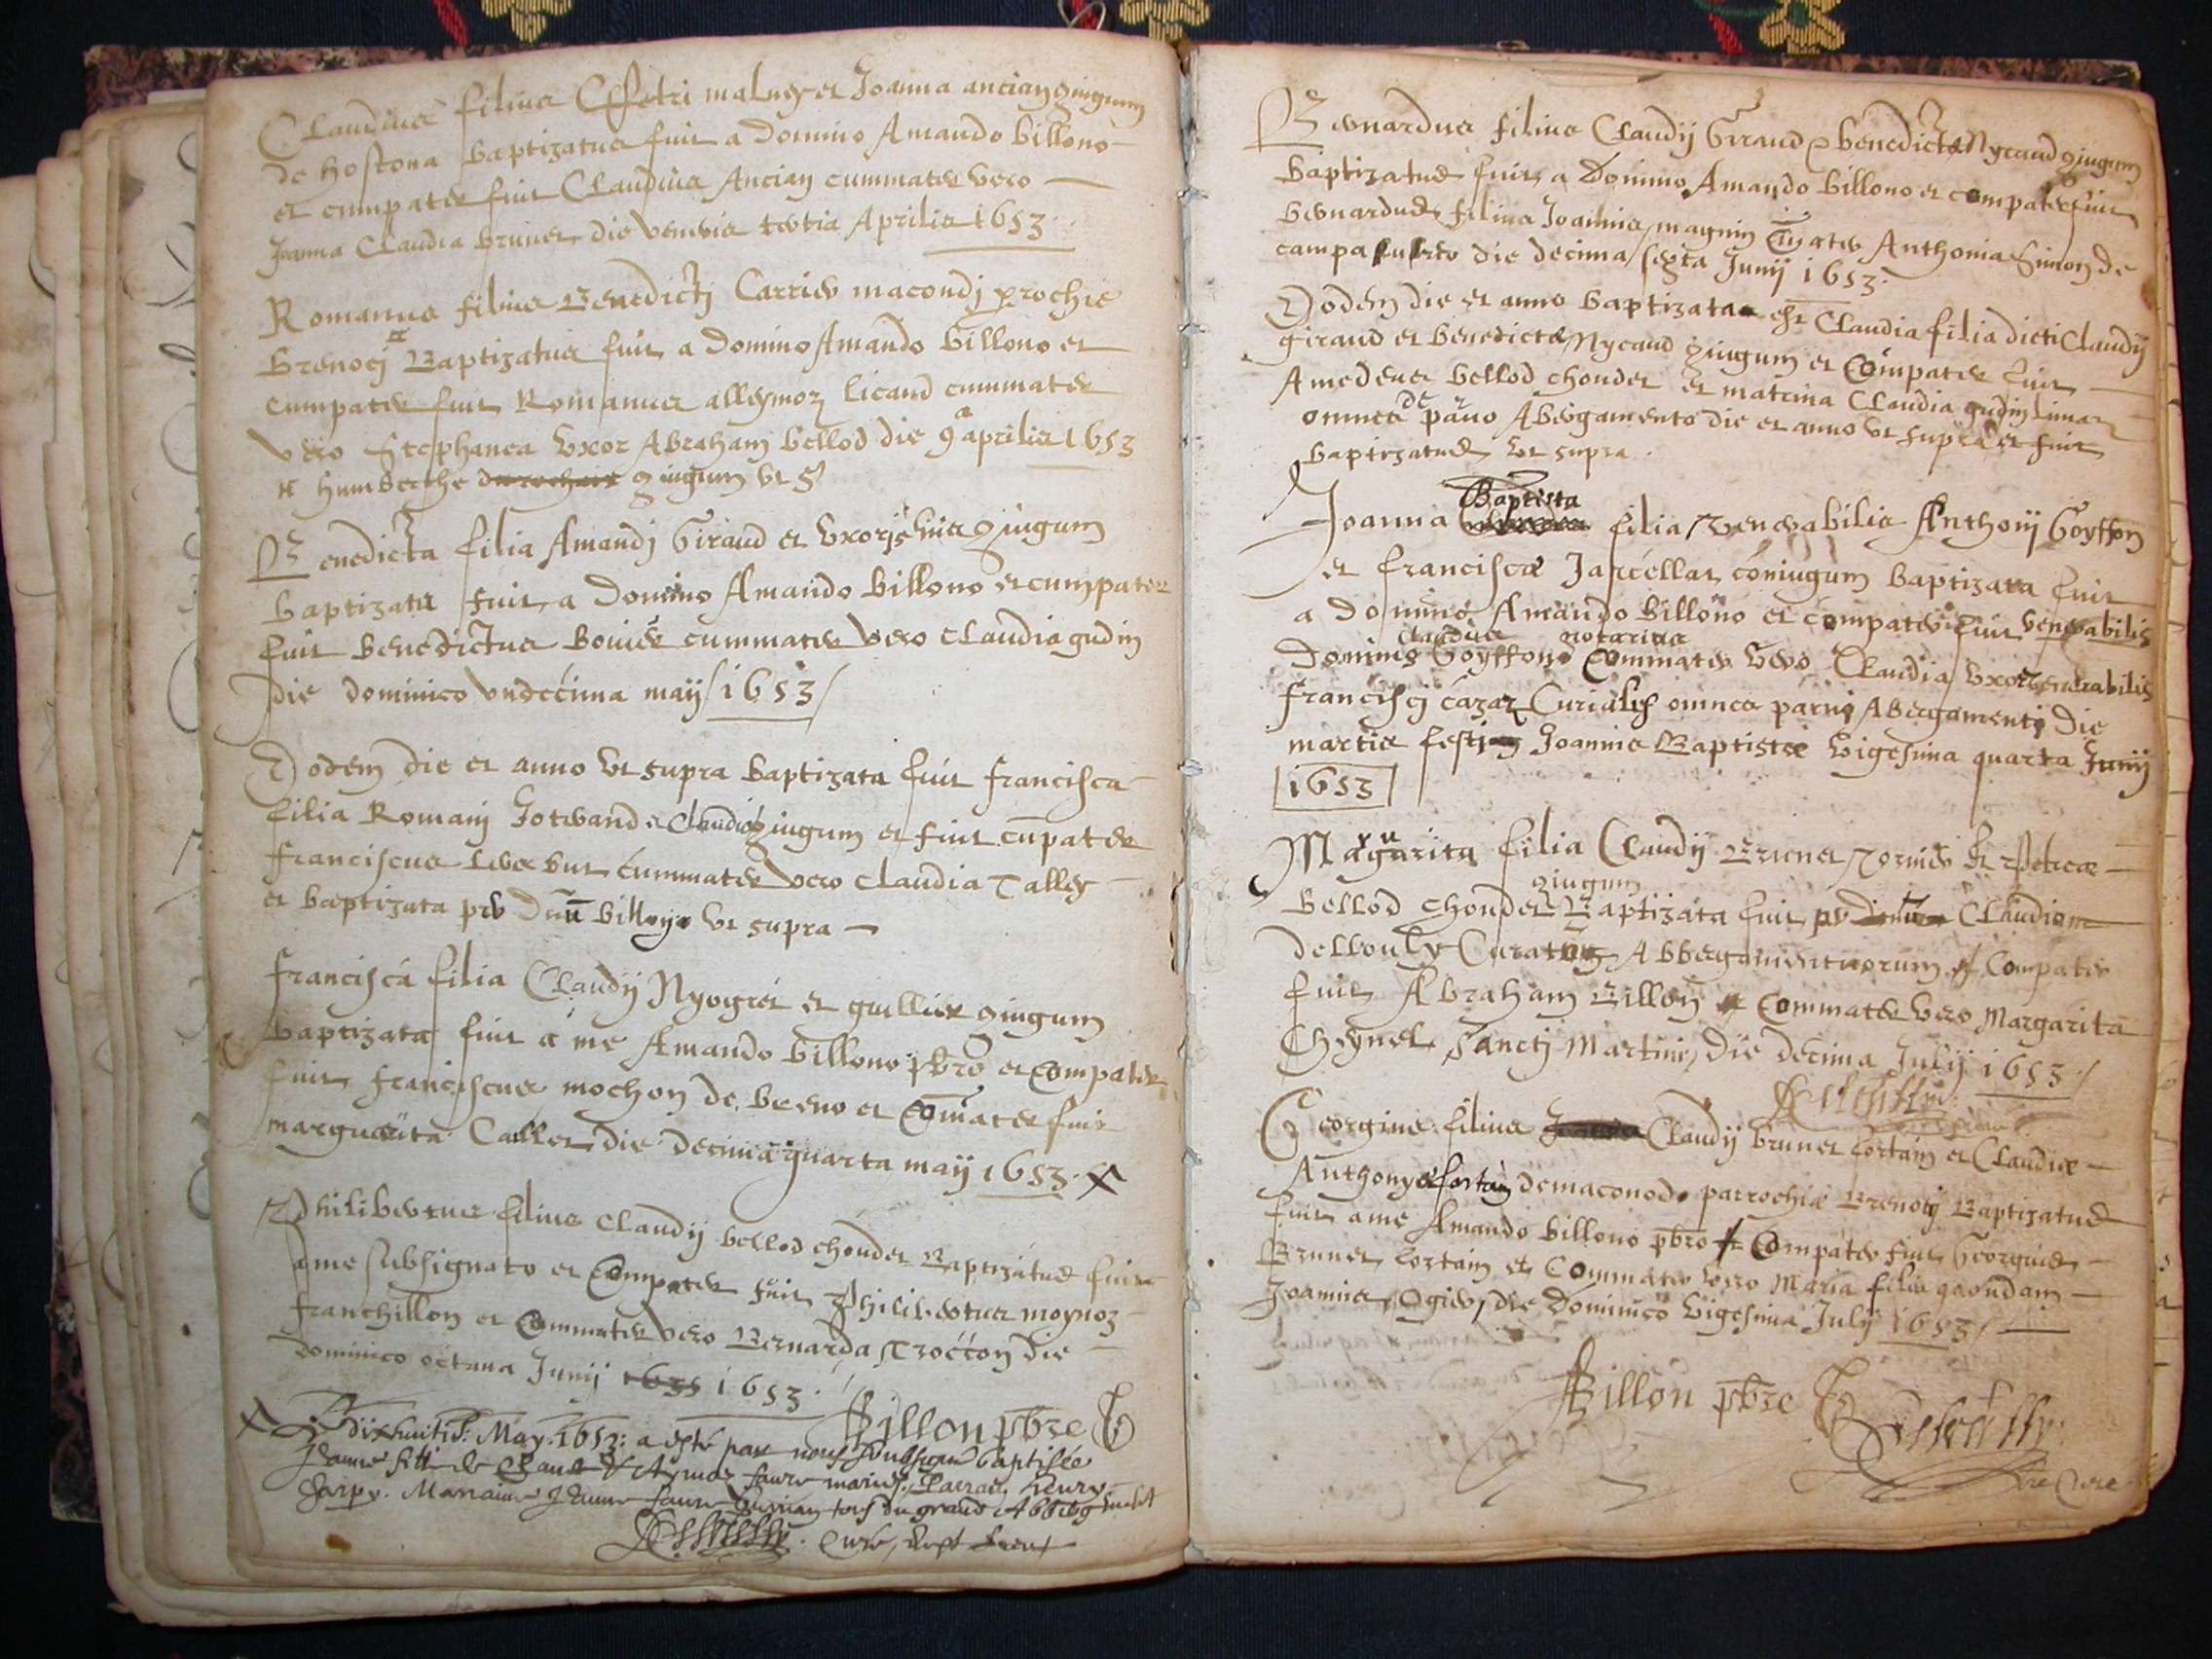 Claudius filius Petri malney et Joanna ancian 9iugum
de hostona baptizatus fuit a domino Amando billono
et cumpater fuit Claudius Ancian cummater vero
Joanna Claudia brunet die veneris tertia Aprilis 1653
Romanus filius Benedictj Carrier macondj prochie
brenocj Baptizatus fuit a domino Amando billono et
cumpater fuit Romanus alleymoz licand cummater
vero Stephanea vxor Abraham bellod die 9a aprilis 1653
humberthe 9iugum vt S
Benedicta filia Amandj Giraud et vxoris 9iugum
baptizata fuit a domino Amando billono et cumpater
fuit benedictus bouier cummater vero Claudia gudin
die dominico vndecima maij 1653
Eodem die et anno vt supra baptizata fuit francisca
filia Romanj Joterand et Claudia 9iugum et fuit cũpater
franciscus cummater vero Claudia Talley
et baptizata per dnũ billono vt supra
francisca filia Claudij Nyogret et 9iugum
baptizata fuit a me Amando billono pbro et Compater
fuit franciscus mochon de breno et Comater fuit
marguarita Caller die decima quarta maij 1653
Philibertus filius Claudij bellod chondet Baptizatus fuit
a me subsignato et Compater fuit Philibertus moynoz
franchillon et Commater vero Bernarda Trocton die
dominico octaua Junij 1635 1653
Billon pbre
dixhuiti May 1653: a esté par nous soubsigné baptisée
Jeanne fille de Claude Aymoz faure mariés. Parrain henry
Jarpy. Maraine Jeanne faure tous du grand Abberg
Curé
Bernardus filius Claudij Giraud & benedictæ Nycaud 9iugum
baptizatus fuit a Domino Amando billono et compater fuit
bernardus filius Joannis magnin Cũmater Anthonia Simon de
campa die decima sexta Junij 1653
Eodem die et anno baptizata est Claudia filia dicti Claudij
giraud et benedictæ Nycaud 9iugum et Compater fuit
Amedeus bellod chondet et matrina Claudia gudin
omnes de paruo Abergamento die et anno vt supra et fuit
baptizatus vt supra
Joanna Baptista filia venerabilis Anthonij Goyffon
et franciscæ Jarcellat coniugum baptizata fuit
a domino Amando billono et compater fuit venerabilis
Dominus Claudius Goyffon notarius Commater vero Claudia vxor venerabilis
franciscj cazaz Curialis omnes paruj Abergamentj die
martis festj Joannis Baptistæ vigesima quarta Junij
1653
Margarita filia Claudij Brunet Tornier et
bellod chondet 9iugum Baptizata fuit per Claudiom
Curatum Abbergamentorum Compater
fuit Abraham Billon Commater vero Margarita
Cheynel Sanctj Martini, die decima Julij 1653
Georgius filius Claudij brunet cortain et Claudiæ
Anthonyæ de maconod parrochiæ Brenocj Baptizatus
fuit a me Amando billono pbro Compater fuit Georgius
Brunet cortain et Commater vero Maria filia quondam
Joannis Ogier, die Dominico vigesima July 1653
Billon pbre